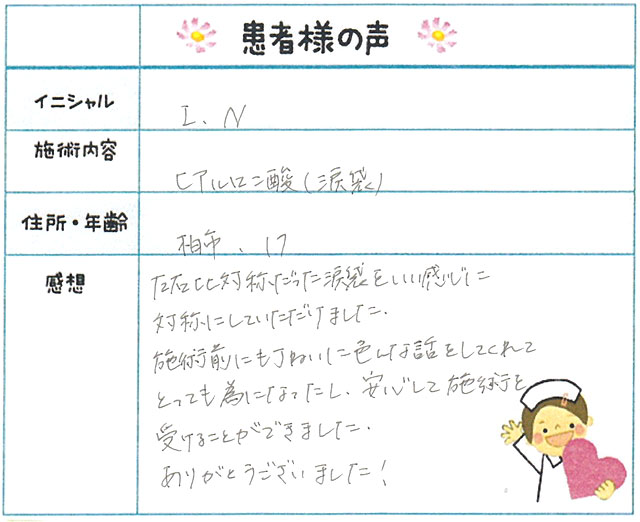 患者様の声
イニシャル
I.N
施術内容
ヒアルロン酸(涙袋)
住所・年齢
柏市、17
感想
左右比対称だった涙袋をいい感じに
対称にしていただけました.
施術前にも丁ねいに色んな話をしてくれて
とっても為になったし、安心して施術を
受けることができました.
ありがとうございました!